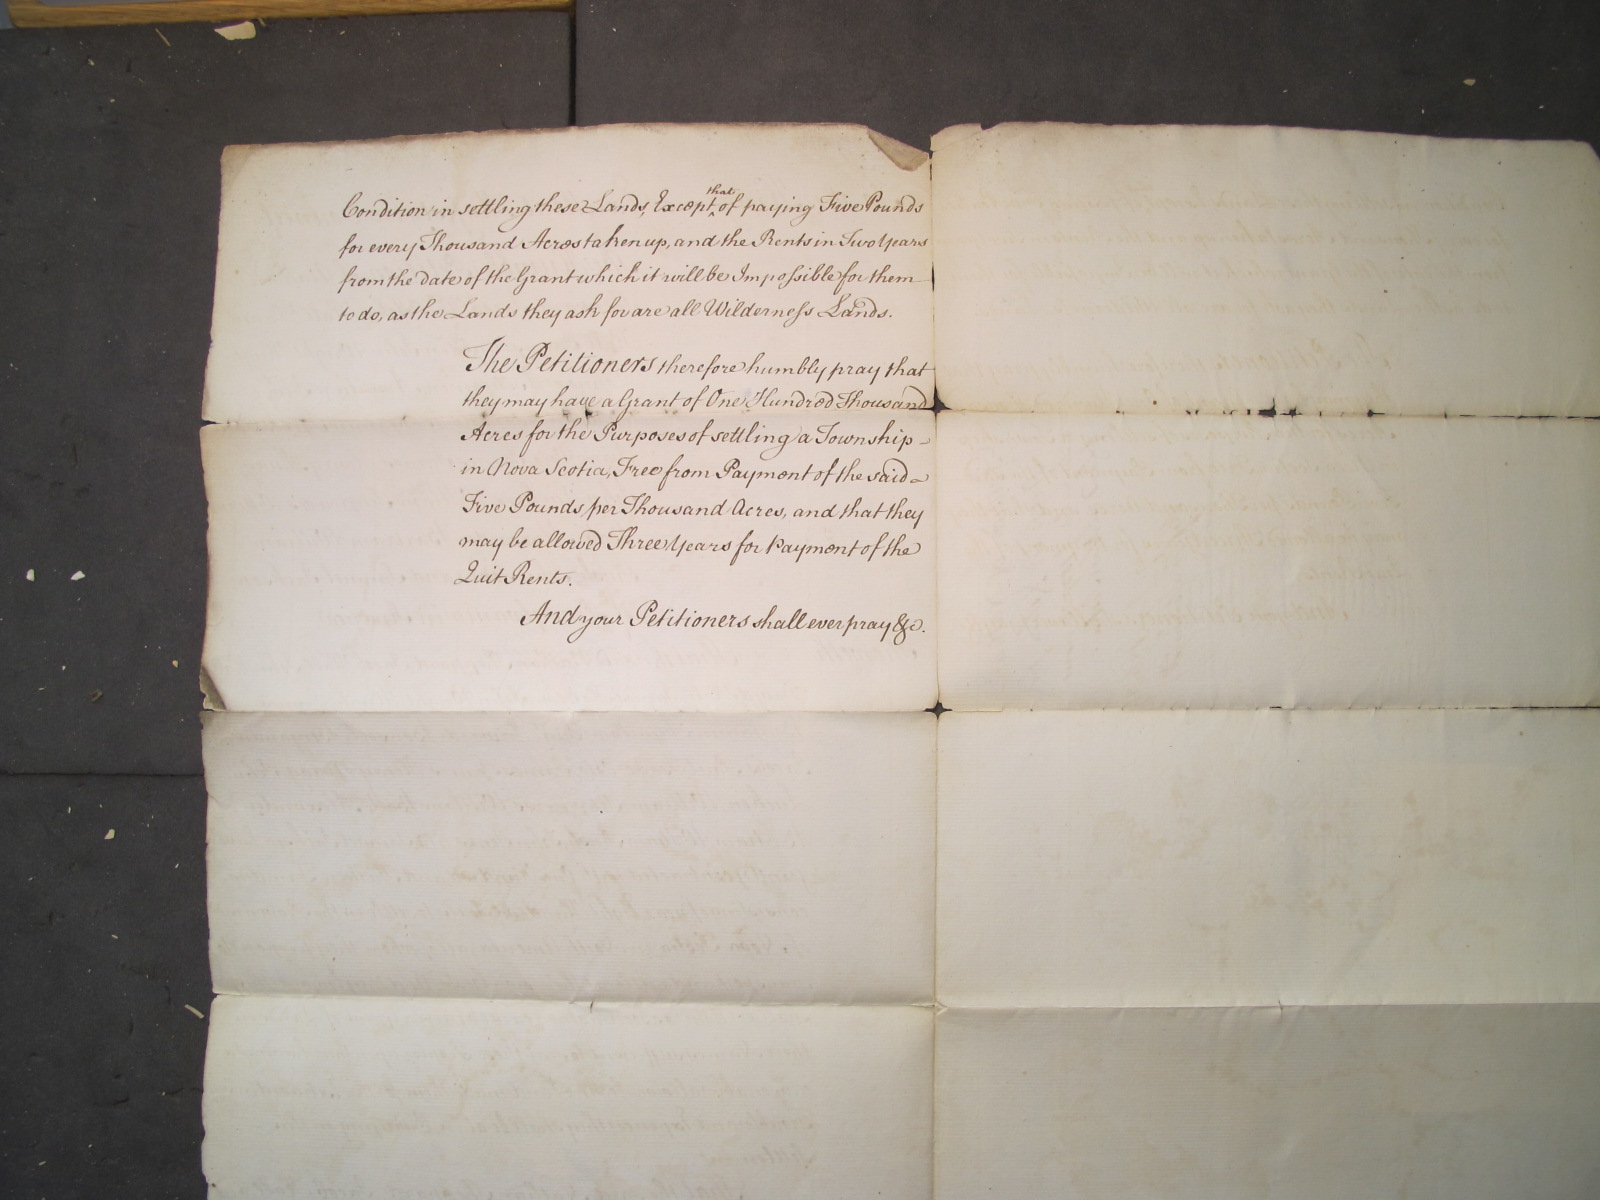 Condition in settling these Lands, Except that of paying Five Pounds
for every Thousand Acres taken up, and the Rents in Two Years
from the Date of the Grant which it will be Impossible for them
to do, as the Lands they ask for are all Wilderness Lands.
The Petitioners therefore humbly pray that
they may have a Grant of One Hundred Thousand
Acres for the Purposes of settling a Township
in Nova Scotia, Free from Payment of the said
Five Pounds per Thousand Acres, and that they
may be allowed Three Years for Payment of the
Quit Rents.
And your Petitioners shall ever pray &c.